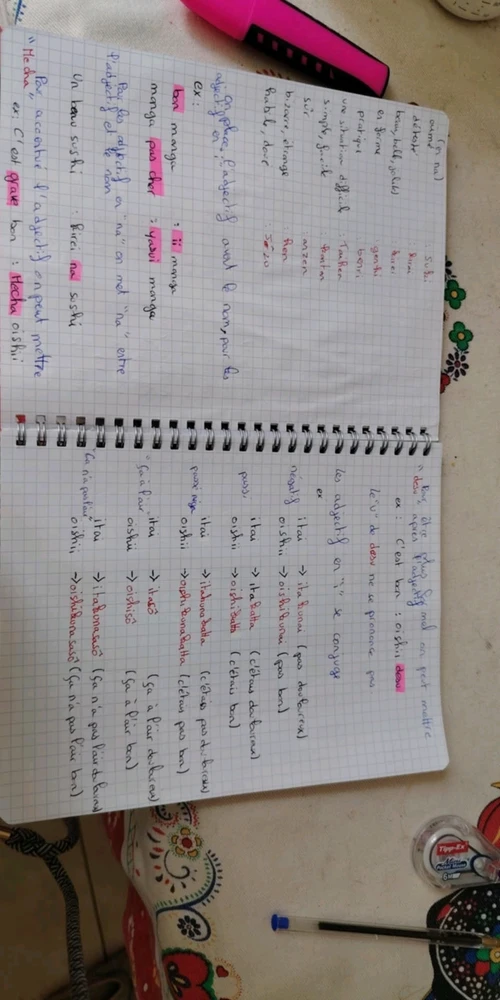 (en na)
aimé Suki
détesté kirai
beau, belle, joli(e) kirei
en forme genki
pratique benri
une situation difficile Taihen
simple, facile kantan
sûr anzen
bizarre, étrange hen
habile, doué Jôzu
on place l'adjectif avant le nom, pour les
adjectif en "i"
ex :
bon manga : ii manga
manga pas cher : yasui manga
Pour les adjectif en "na" on met "na" entre
l'adjectif et le nom
Un beau sushi : kirei na sushi
Pour accentué l'adjectif on peut mettre
"Mecha"
ex : C'est grave bon : Mecha oishii
Pour être plus mal on peut mettre
"desu" après l'adjectif
ex : C'est bon : oishii desu
Le "u" de desu ne se prononce pas
Les adjectif en "i" se conjugue
ex
négatif itai → itakunai (pas douloureux)
oishii → oishikunai (pas bon)
passé itai → itakatta (c'étais douloureux)
oishii → oishikatta (c'étais bon)
itai → itakunakatta (c'étais pas douloureux)
oishii → oishikunakatta (c'étais pas bon)
"Ça à l'air" itai → itasô (ça à l'air douloureux)
oishii → oishisô (ça à l'air bon)
"Ça n'a pas l'air" itai → itakunasasô (ça n'a pas l'air douloureux)
oishii → oishikunasasô (ça n'a pas l'air bon)
Tipp-Ex